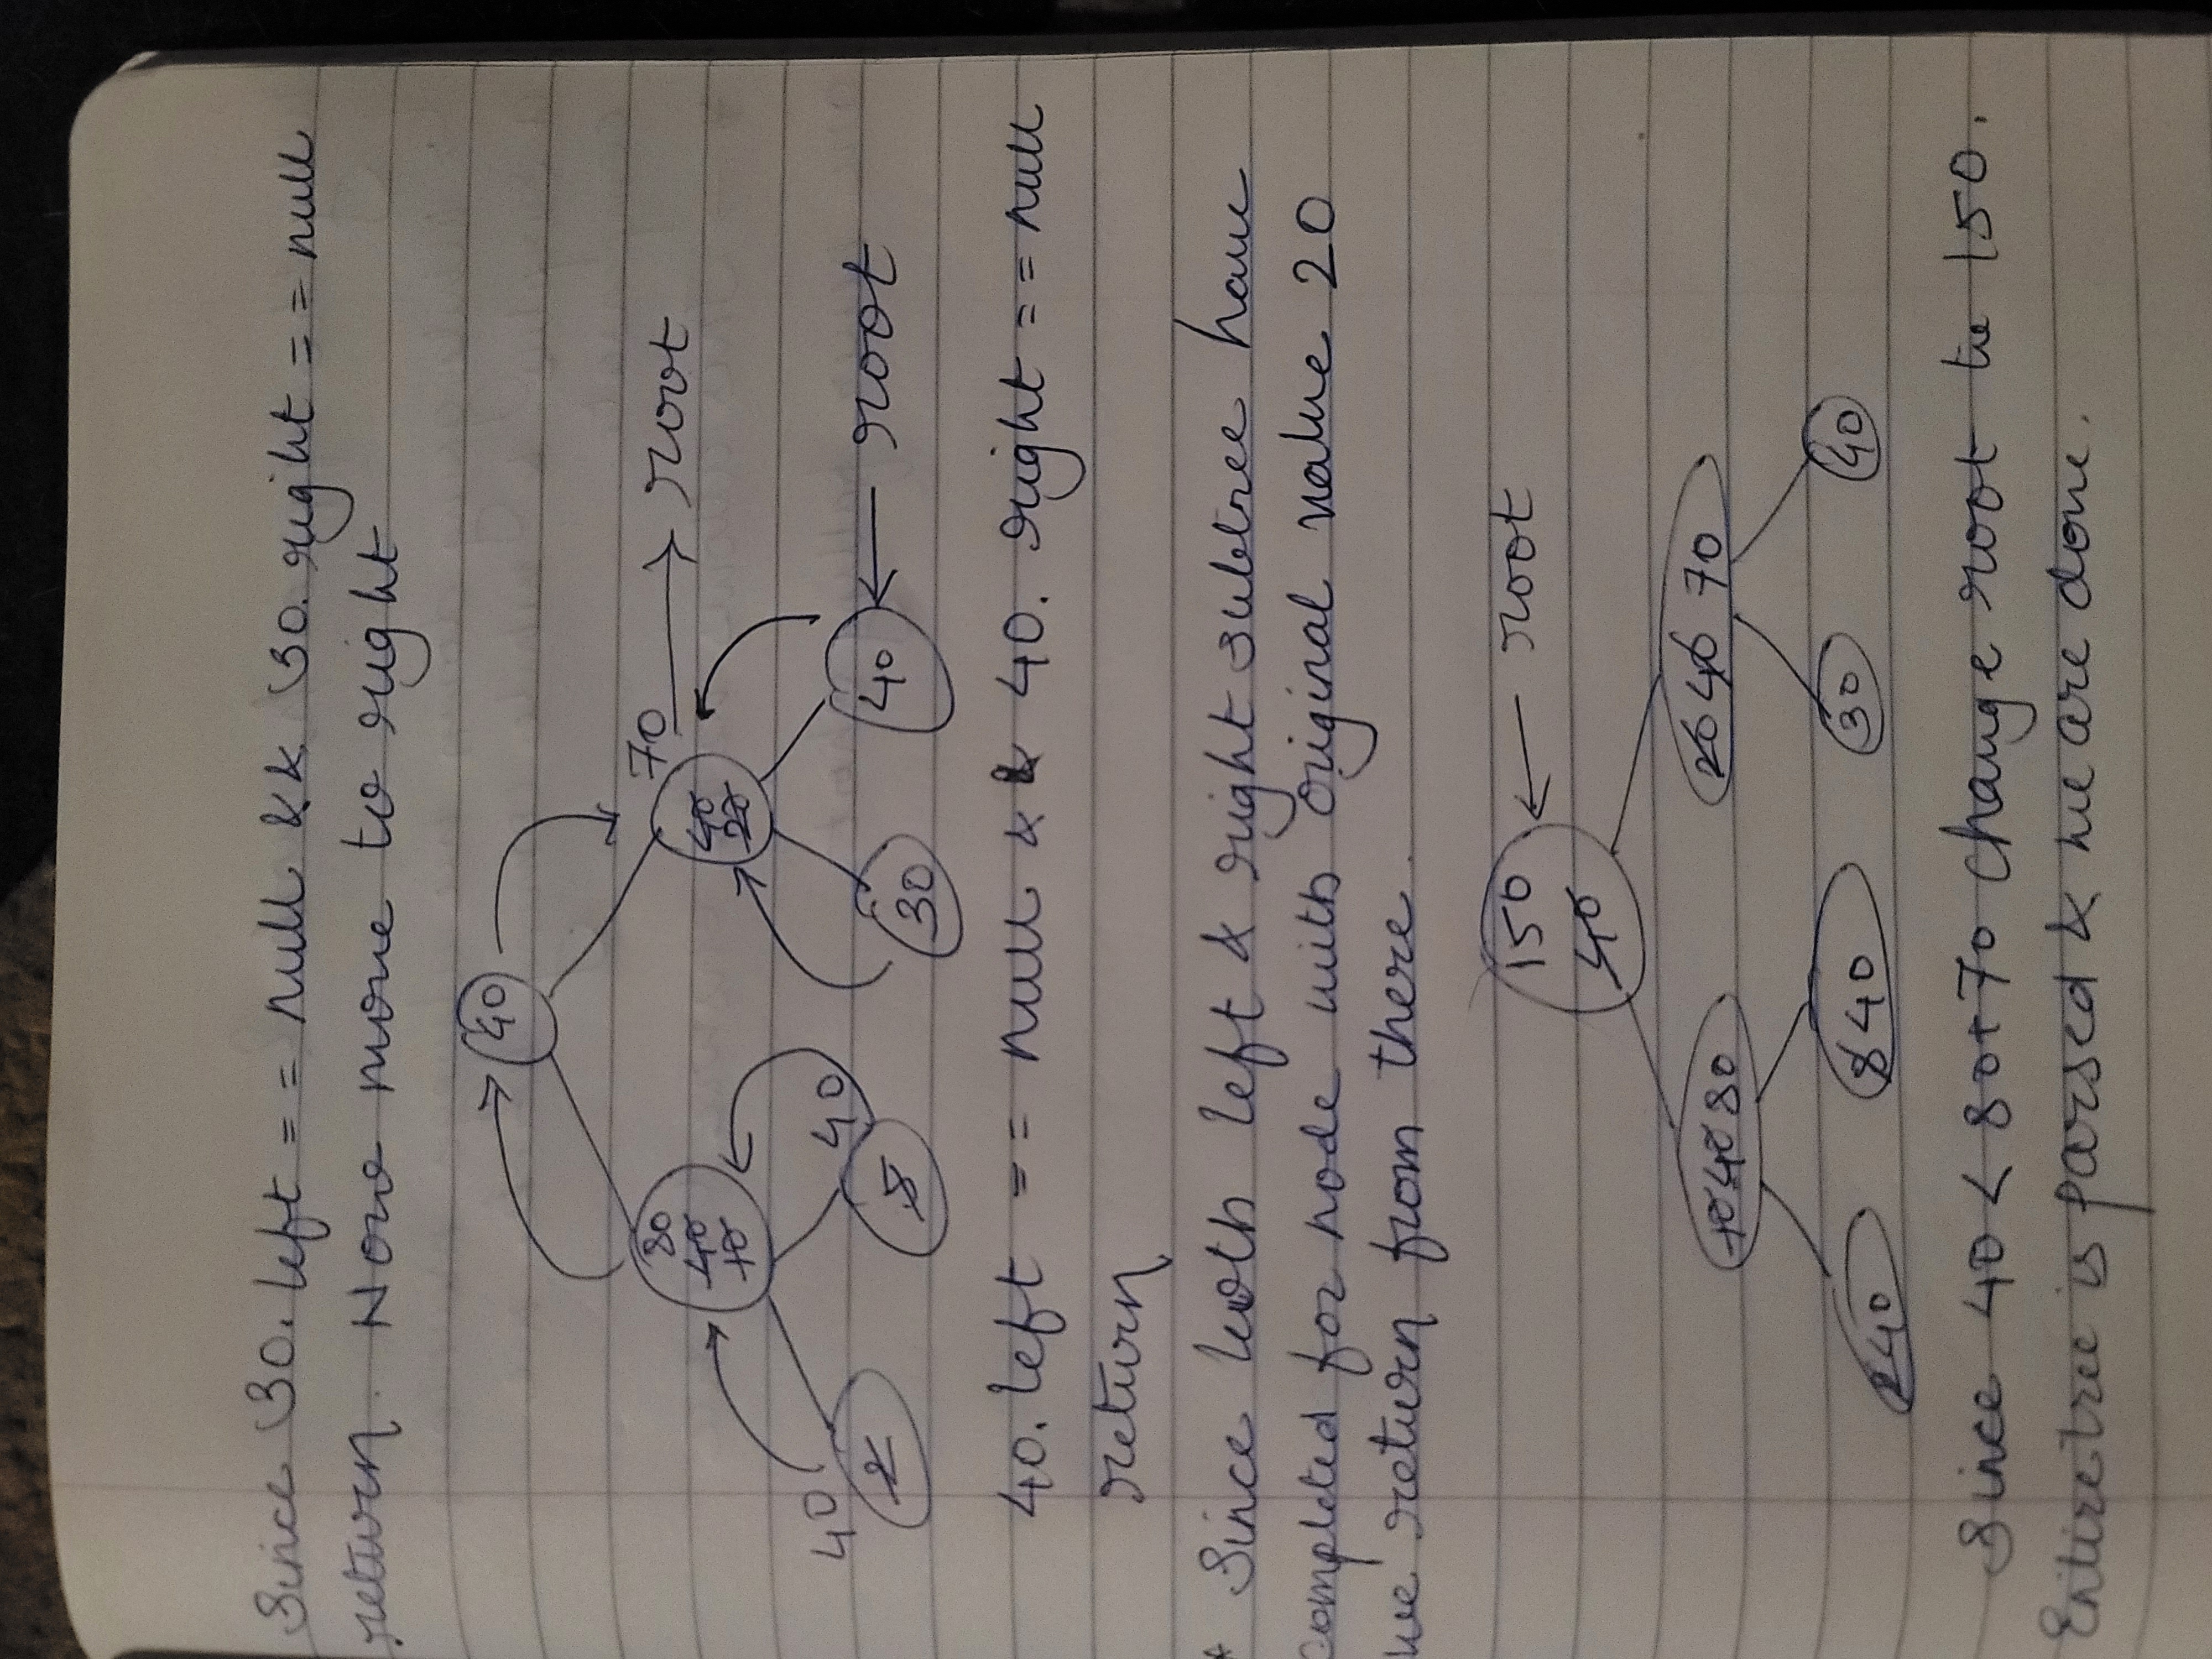 Since 30. left == null && 30. right == null
return. Now move to right
40
80 70 → root
40 40
10 20
40 40
2 5 30 40 ← root
40. left == null && 40. right == null
return
* Since both left & right subtree have
completed for node with original value 20
we return from there.
150 ← root
40
10 40 80 20 40 70
2 40 8 40 30 40
Since 40 < 80+70 change root to 150.
Entire tree is parsed & we are done.